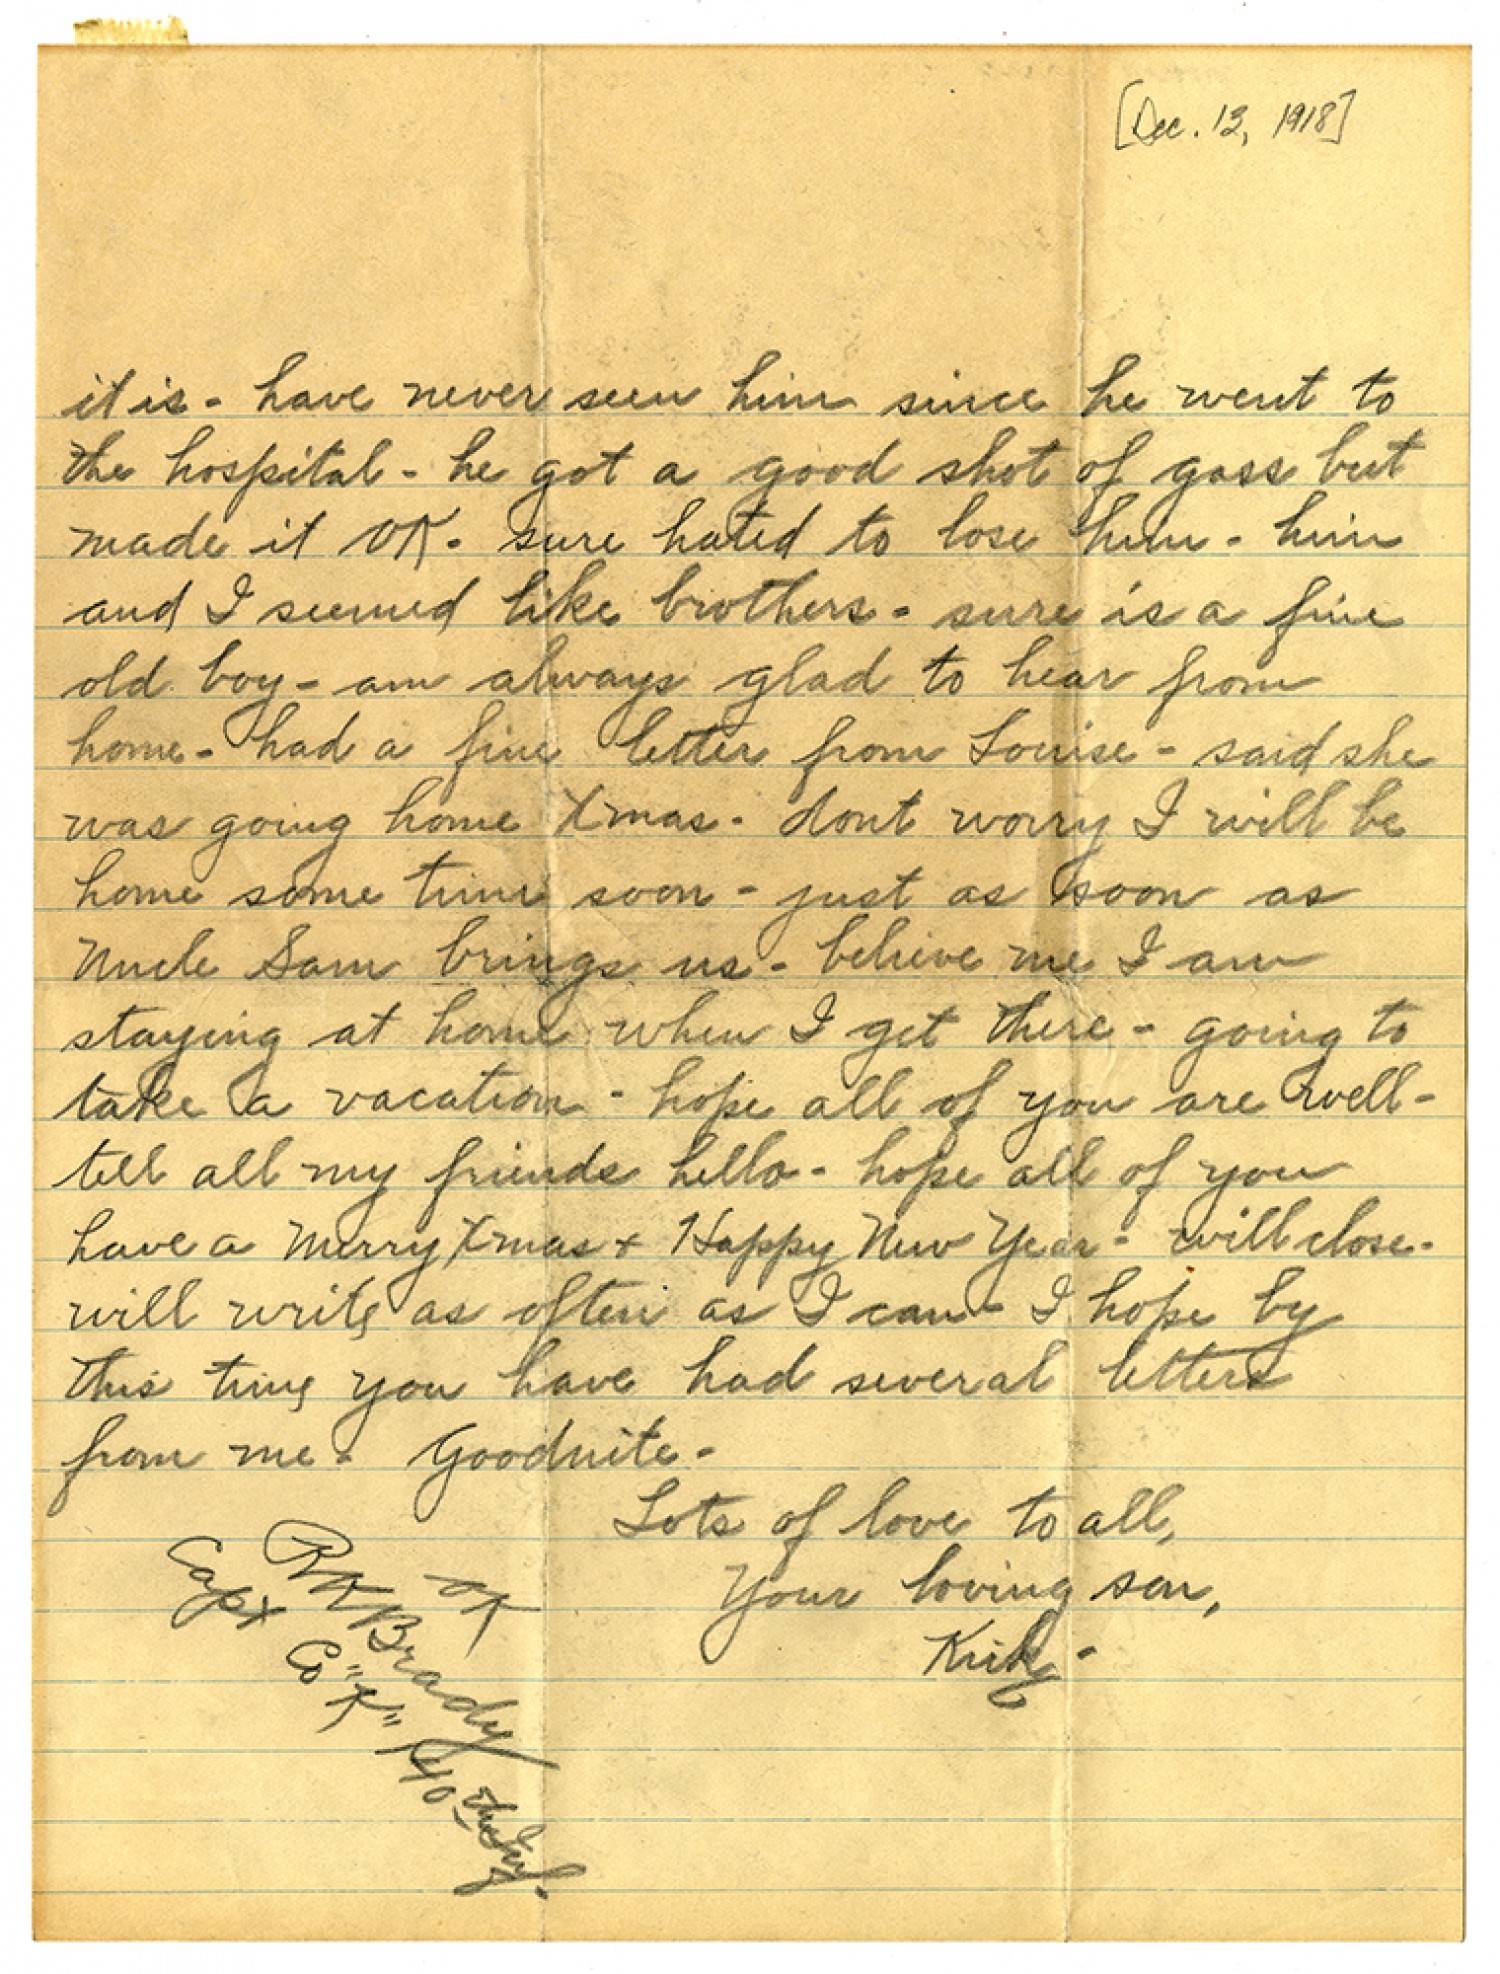 [Dec. 13, 1918]
it is - have never seen him since he went to
the hospital - he got a good shot of gass but
made it OK - sure hated to lose him - him
and I seemed like brothers - sure is a fine
old boy - am always glad to hear from
home - had a fine letter from Louise - said she
was going home Xmas - dont worry I will be
home some time soon - just as soon as
Uncle Sam brings us - believe me I am
staying at home when I get there - going to
take a vacation - hope all of you are well -
tell all my friends hello - hope all of you
have a Merry Xmas + Happy New Year - will close -
will write as often as I can - I hope by
this time you have had several letters
from me - Goodnite -
Lots of love to all,
Your loving son,
OK
Brady
Capt Co "K" 140th Inf.